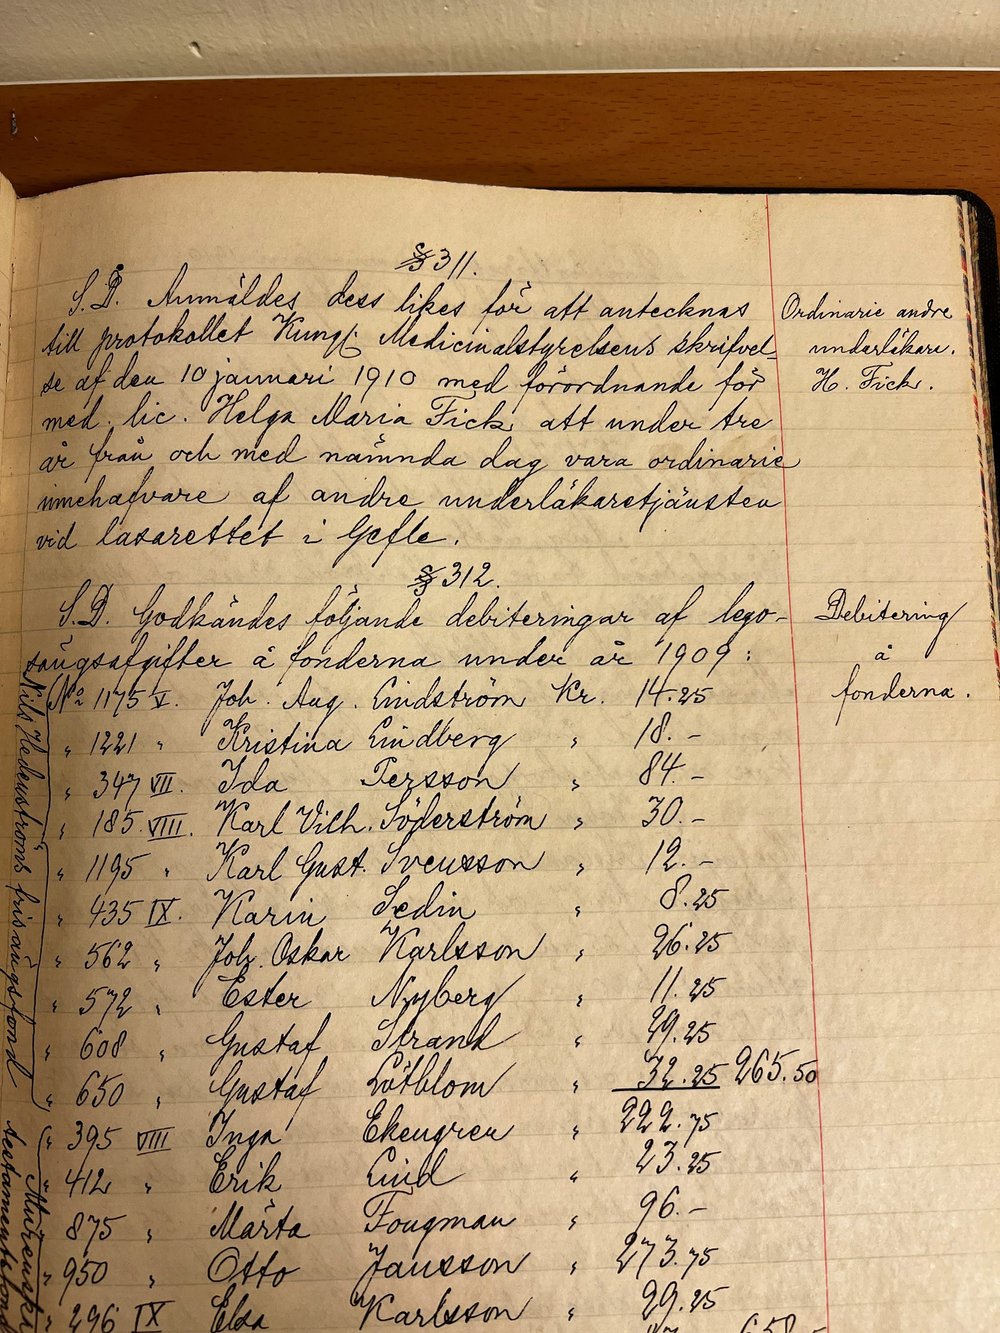 § 311.
S. D. Anmäldes dess likes för att antecknas
till protokollet Kungl. Medicinalstyrelsens skrifvel-
se af den 10 januari 1910 med förordnande för
med. lic. Helga Maria Fick att under tre
år från och med nämnda dag vara ordinarie
innehafvare af andre underläkaretjänsten
vid lasarettet i Gefle.
Ordinarie andre
underläkare.
H. Fick.
§ 312.
S. D. Godkändes följande debiteringar af lego-
sängsafgifter å fonderna under år 1909:
Debitering
å
fonderna.
Nils Hedenströms frisängsfond
No 1175 V. Joh. Aug. Lindström Kr. 14.25
" 1221 " Kristina Lindberg " 18.-
" 347 VII. Ida Persson " 84.-
" 185 VIII. Karl Vilh. Söderström " 30.-
" 1195 " Karl Gust. Svensson " 12.-
" 435 IX. Karin Sedin " 8.25
" 562 " Joh. Oskar Karlsson " 26.25
" 572 " Ester Nyberg " 11.25
" 608 " Gustaf Strand " 29.25
" 650 " Gustaf Lötblom " 32.25 265.50
" 395 VIII Inga Ekengren " 222.75
" 412 " Erik Lind " 23.25
" 875 " Märta Fougman " 96.-
" 950 " Otto Jansson " 273.75
" 296 IX Elsa Karlsson " 29.25
testamentsfond